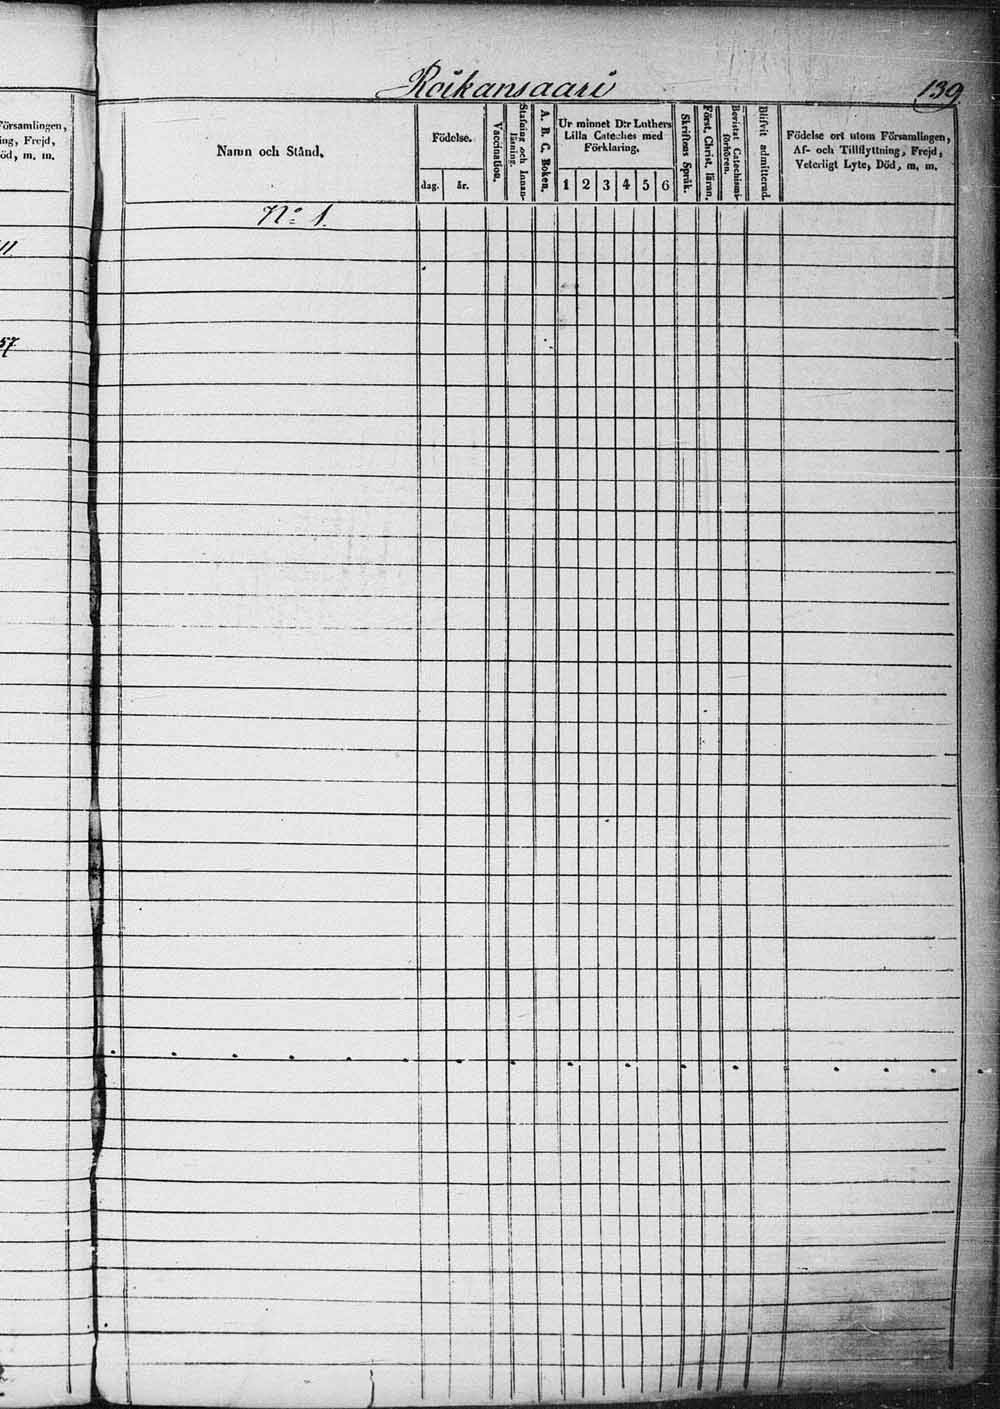 Roikansaari
139
Församlingen,
ing, Frejd,
öd, m. m.
11
57
Namn och Stånd.
Födelse.
dag.
år.
Vaccination.
Stafning och Innan-
läsning.
A. B. C. Boken.
Ur minnet D:r Luthers
Lilla Cateches med
Förklaring.
1 2 3 4 5 6
Skriftens Språk.
Först. Christ. läran.
Bevistat Catechismi-
förhören.
Blifvit admitterad.
Födelse ort utom Församlingen,
Af- och Tillflyttning, Frejd,
Veterligt Lyte, Död, m. m.
No 1.